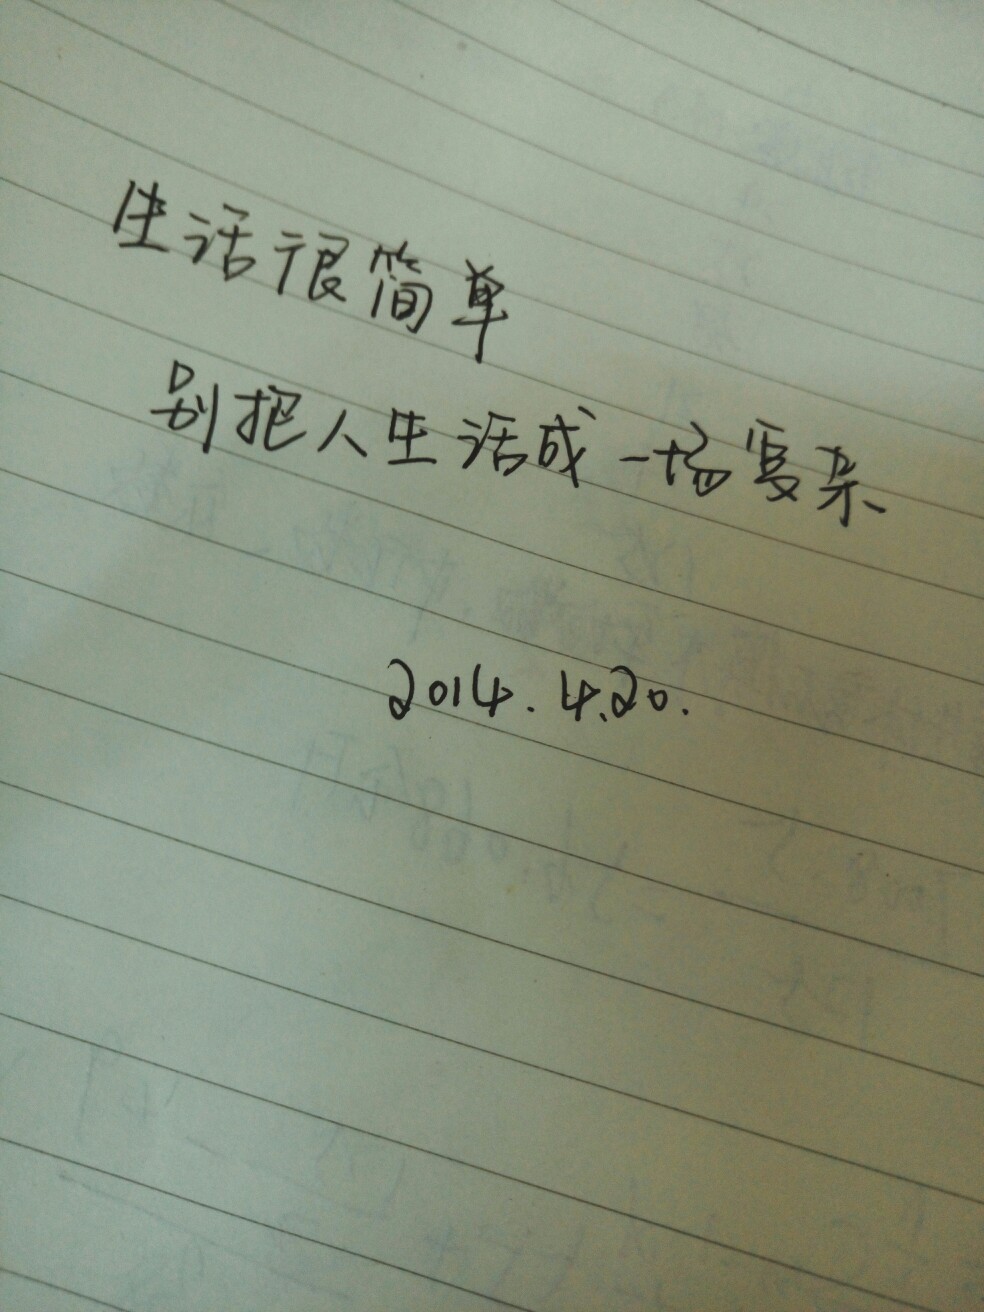 生活很简单
别把人生活成一场复杂
2014.4.20.